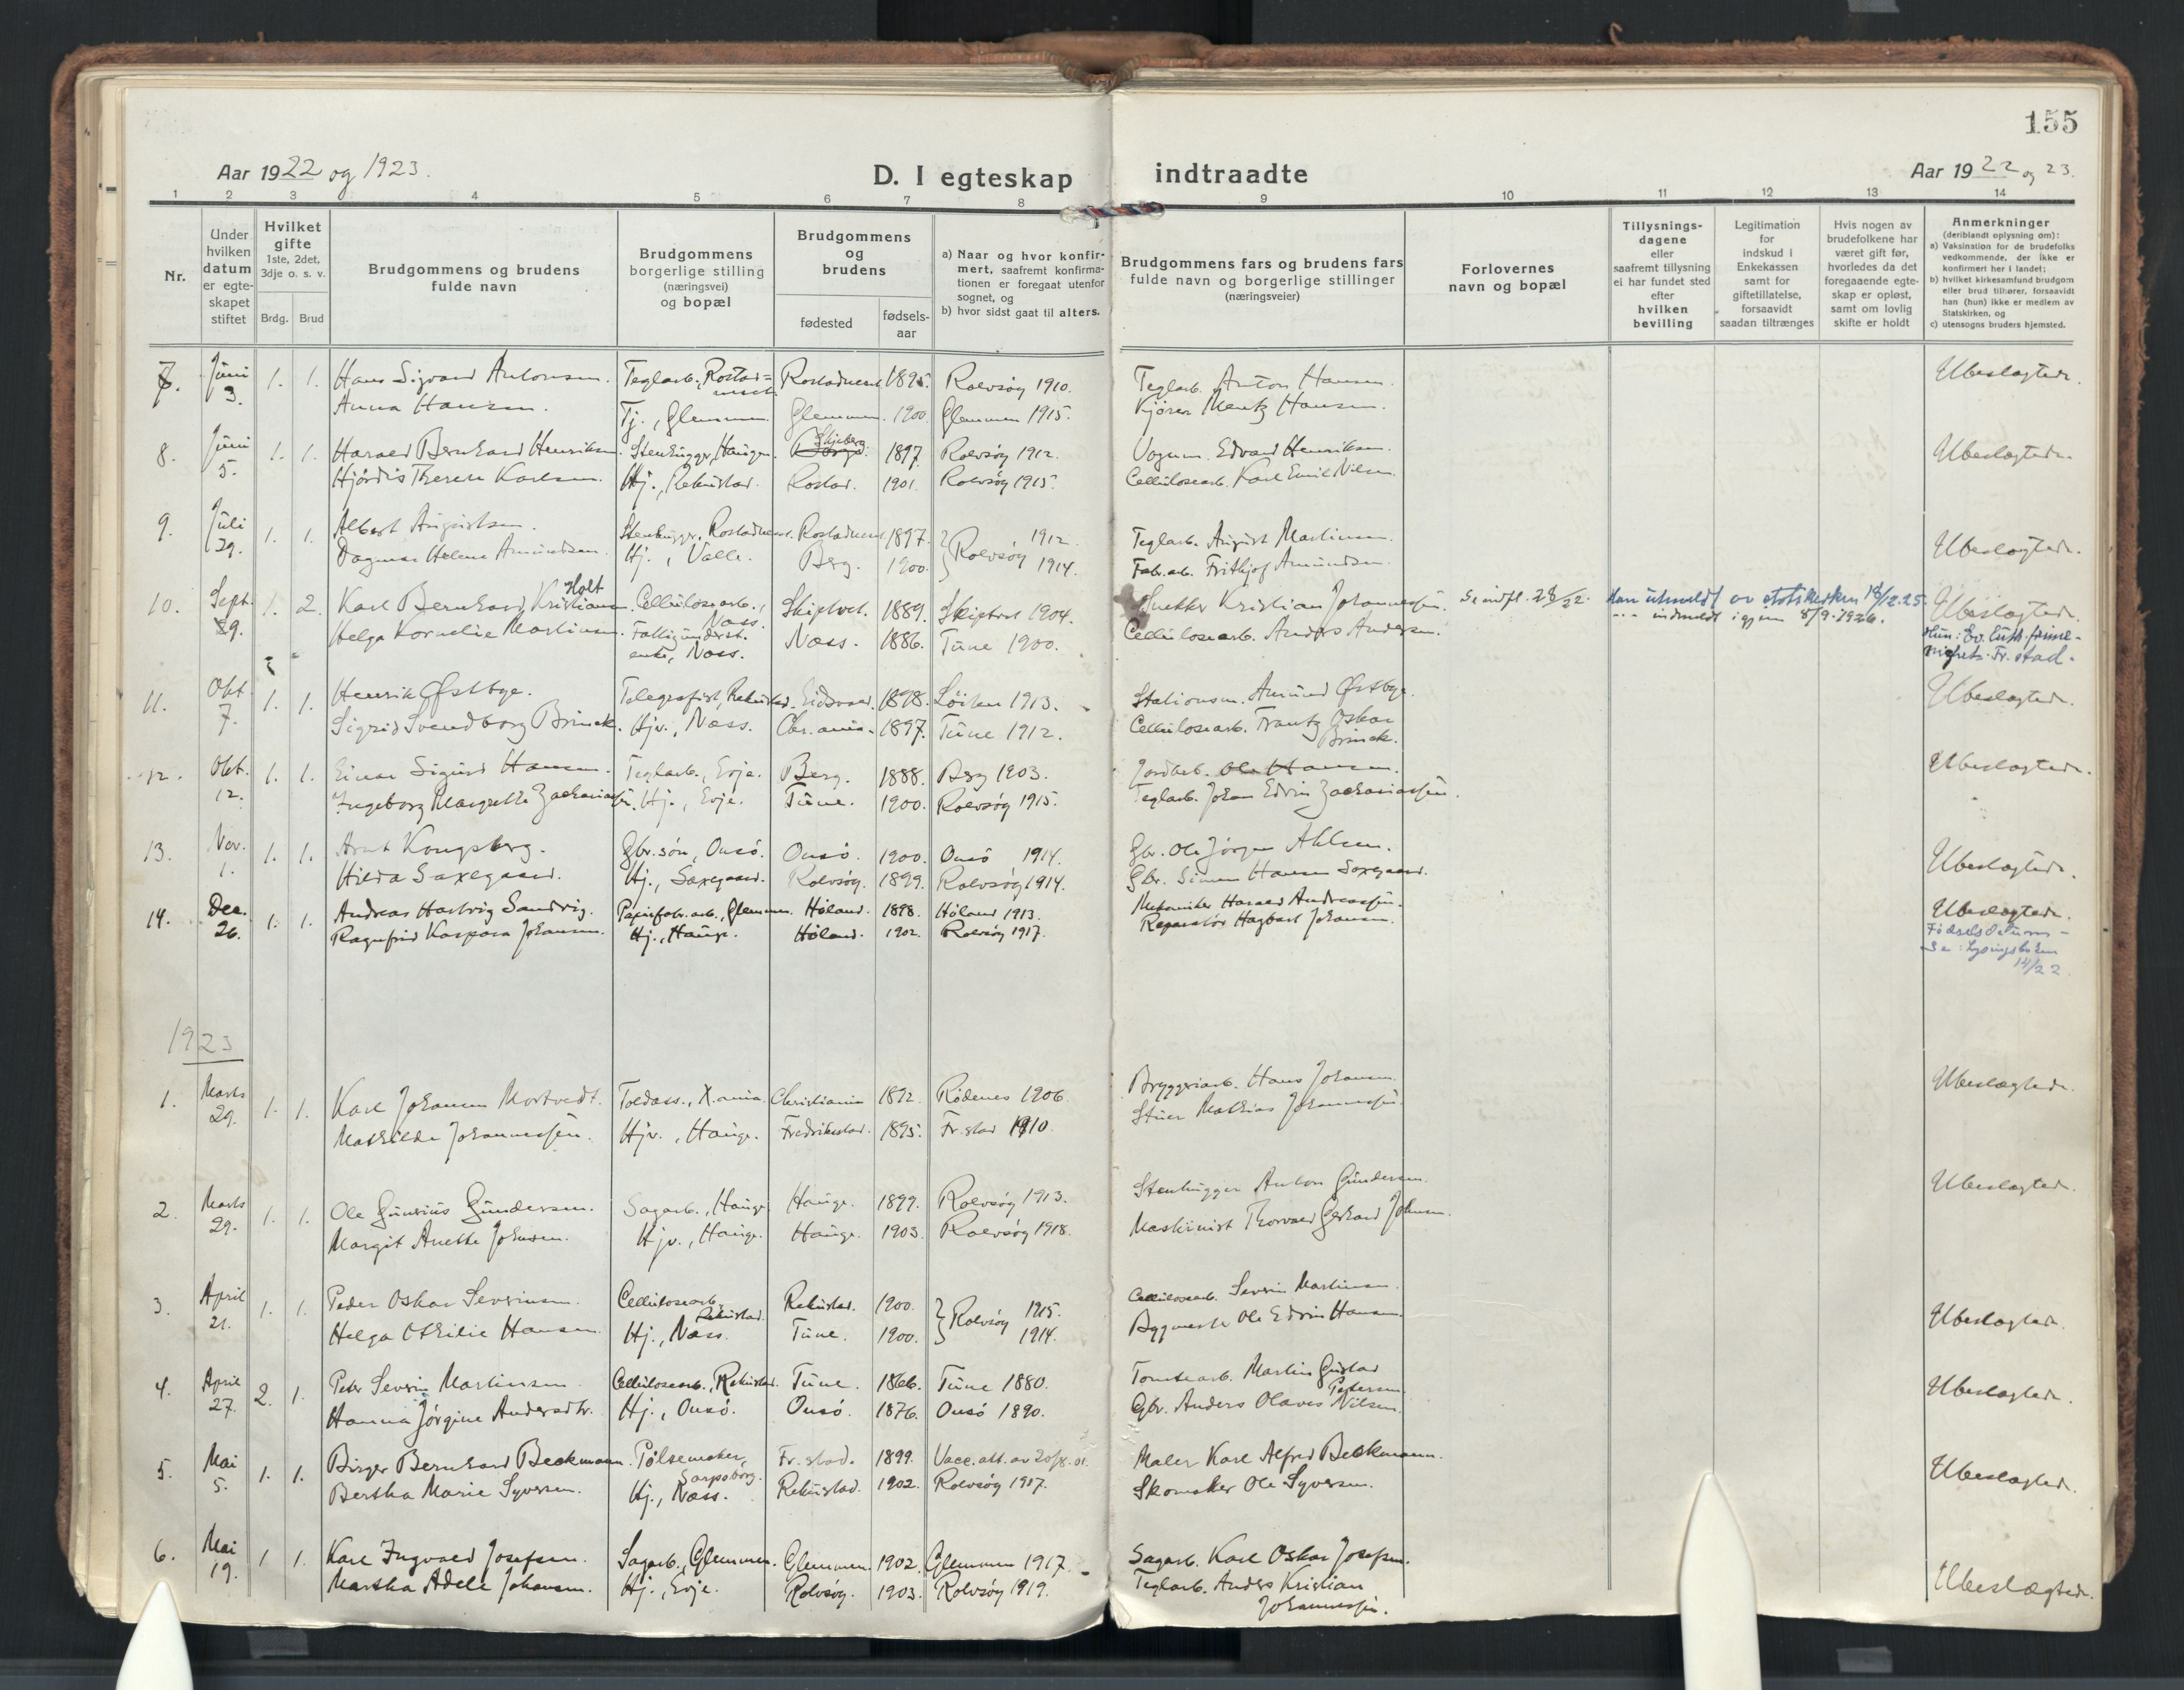 155
Aar 1922 og 1923.
D. I egteskap indtraadte
Aar 1922 og 23.
1 2 3 4 5 6 7 8 9 10 11 12 13 14
Nr.
Under hvilken datum er egte-skapet stiftet
Hvilket gifte 1ste, 2det, 3dje o. s. v.
Brdg. Brud
Brudgommens og brudens fulde navn
Brudgommens borgerlige stilling (næringsvei) og bopæl
Brudgommens og brudens
fødested
fødsels-aar
a) Naar og hvor konfir-mert, saafremt konfirma-tionen er foregaat utenfor sognet, og
b) hvor sidst gaat til alters.
Brudgommens fars og brudens fars fulde navn og borgerlige stillinger (næringsveier)
Forlovernes navn og bopæl
Tillysnings-dagene eller saafremt tillysning ei har fundet sted efter hvilken bevilling
Legitimation for indskud i Enkekassen samt for giftetillatelse, forsaavidt saadan tiltrænges
Hvis nogen av brudefolkene har været gift før, hvorledes da det foregaaende egte-skap er opløst, samt om lovlig skifte er holdt
Anmerkninger
(deriblandt oplysning om):
a) Vaksination for de brudefolks vedkommende, der ikke er konfirmert her i landet;
b) hvilket kirkesamfund brudgom eller brud tilhører, forsaavidt han (hun) ikke er medlem av Statskirken, og
c) utensogns bruders hjemsted.
7. Juni 3. 1. 1. Hans Sigvard Antonsen. Teglarb., Rostad=neset Rostadneset 1895. Rolvsøy 1910. Teglarb. Anton Hansen. Ubeslægtede.
Anna Hansen. Tj., Glemmen. Glemmen. 1900. Glemmen 1915. Kjører Mentz Hansen.
8. Juni 5. 1. 1. Harald Bernhard Henriksen. Stenhugger, Hauge. Skjeberg. 1897. Rolvsøy 1912. Vognm. Edvard Henriksen. Ubeslægtede.
Hjördis Therese Karlsen. Hj., Rekustad. Rostad. 1901. Rolvsøy 1915. Cellulosearb. Karl Emil Nilsen.
9. Juli 29. 1. 1. Albert Augustsen. Stenhugger, Rostadneset. Rostadneset 1897. Rolvsøy 1912. Teglarb. August Martinsen. Ubeslægtede.
Dagmar Helene Amundsen. Hj., Valle. Berg. 1900. 1914. Fabr.arb. Frithjof Amundsen.
10. Sept. 29. 1. 2. Karl Bernhard Kristiansen Holt Cellulosearb., Næss. Skiptvet. 1889. Skiptvet 1904. Snekker Kristian Johannessen. Ubeslægtede.
Han utmeldt av statskirken 18/12.25.
--- indmeldt igjen 8/9.1926.
Helga Kornelie Martinsen. Fattigunderst. enke, Næss. Næss. 1886. Tune 1900. Cellulosearb. Anders Andersen.
Hun: Ev. luth. frime-nighets. Fr.stad.
11. Okt. 7. 1. 1. Henrik Østbye. Telegrafist, Rekustad. Eidsvold. 1898. Löiten 1913. Stationsm. Amund Østbye. Ubeslægtede.
Sigrid Svendborg Brinck. Hjv., Næss. Chr.ania. 1897. Tune 1912. Cellulosearb. Frantz Oskar Brinck.
12. Okt. 12. 1. 1. Einar Sigurd Hansen. Teglarb., Evje. Berg. 1888. Berg 1903. Jordarb. Ole Hansen. Ubeslægtede.
Ingeborg Margrethe Zachariassen. Hj., Evje. Tune. 1900. Rolvsøy 1915. Teglarb. Johan Edvin Zachariassen.
13. Nov. 1. 1. 1. Arnt Kongsberg. Gbr.søn, Onsö. Onsö. 1900. Onsö 1914. Gbr. Ole Jörgen Ahlsen. Ubeslægtede.
Hilda Saxegaard. Hj., Saxegaard. Rolvsöy. 1899. Rolvsöy 1914. Gbr. Simen Hansen Saxegaard.
14. Dec. 26. 1. 1. Andreas Hartvig Sandvig. Papirfabr.arb., Glemmen. Høland. 1898. Høland 1913. Mekaniker Harald Andreassen. Ubeslægtede.
Ragnfrid Kaspara Johansen. Hj., Hauge. Høland. 1902. Rolvsöy 1917. Reparatör Hagbart Johansen.
Fødselsdatum -
Se: Lysingsboken
14/22
1923
1. Marts 29. 1. 1. Karl Johansen Mortvedt. Toldass., X.ania. Christiania 1892. Rødenes 1906. Bryggeriarb. Hans Johansen. Ubeslægtede.
Mathilde Johannessen. Hjv., Hauge. Fredrikstad. 1895. Fr.stad 1910. Stuer Mathias Johannessen.
2. Marts 29. 1. 1. Ole Gunerius Gundersen. Sagarb., Hauge. Hauge. 1899. Rolvsöy 1913. Stenhugger Anton Gundersen. Ubeslægtede.
Margit Anette Johnsen. Hjv., Hauge. Hauge. 1903. Rolvsöy 1918. Maskinist Thorvald Gerhard Johnsen.
3. April 21. 1. 1. Peder Oskar Severinsen. Cellulosearb., Rekustad. Rekustad. 1900. Rolvsöy 1915. Cellulosearb. Severin Martinsen. Ubeslægtede.
Helga Othilie Hansen. Hj., Næss. Tune. 1900. 1914. Bygmester Ole Edvin Hansen.
4. April 27. 2. 1. Peder Severin Martinsen. Cellulosearb., Rekustad. Tune. 1866. Tune 1880. Tomtearb. Martin Gustav Pedersen. Ubeslægtede.
Hanna Jörgine Andersdtr. Hj., Onsö. Onsö. 1876. Onsö 1890. Gbr. Anders Olaves Nilsen.
5. Mai 5. 1. 1. Birger Bernhard Beckmann. Pølsemaker, Sarpsborg. Fr.stad. 1899. Vacc.att. av 20/8.01. Maler Karl Alfred Beckmann. Ubeslægtede.
Bertha Marie Syversen. Hj., Næss. Rekustad. 1902. Rolvsöy 1917. Skomaker Ole Syversen.
6. Mai 19. 1. 1. Karl Ingvald Josefsen. Sagarb., Glemmen. Glemmen. 1902. Glemmen 1917. Sagarb. Karl Oskar Josefsen. Ubeslægtede.
Martha Adele Johansen. Hj., Evje. Rolvsöy. 1903. Rolvsöy 1919. Teglarb. Anders Kristian Johannessen.